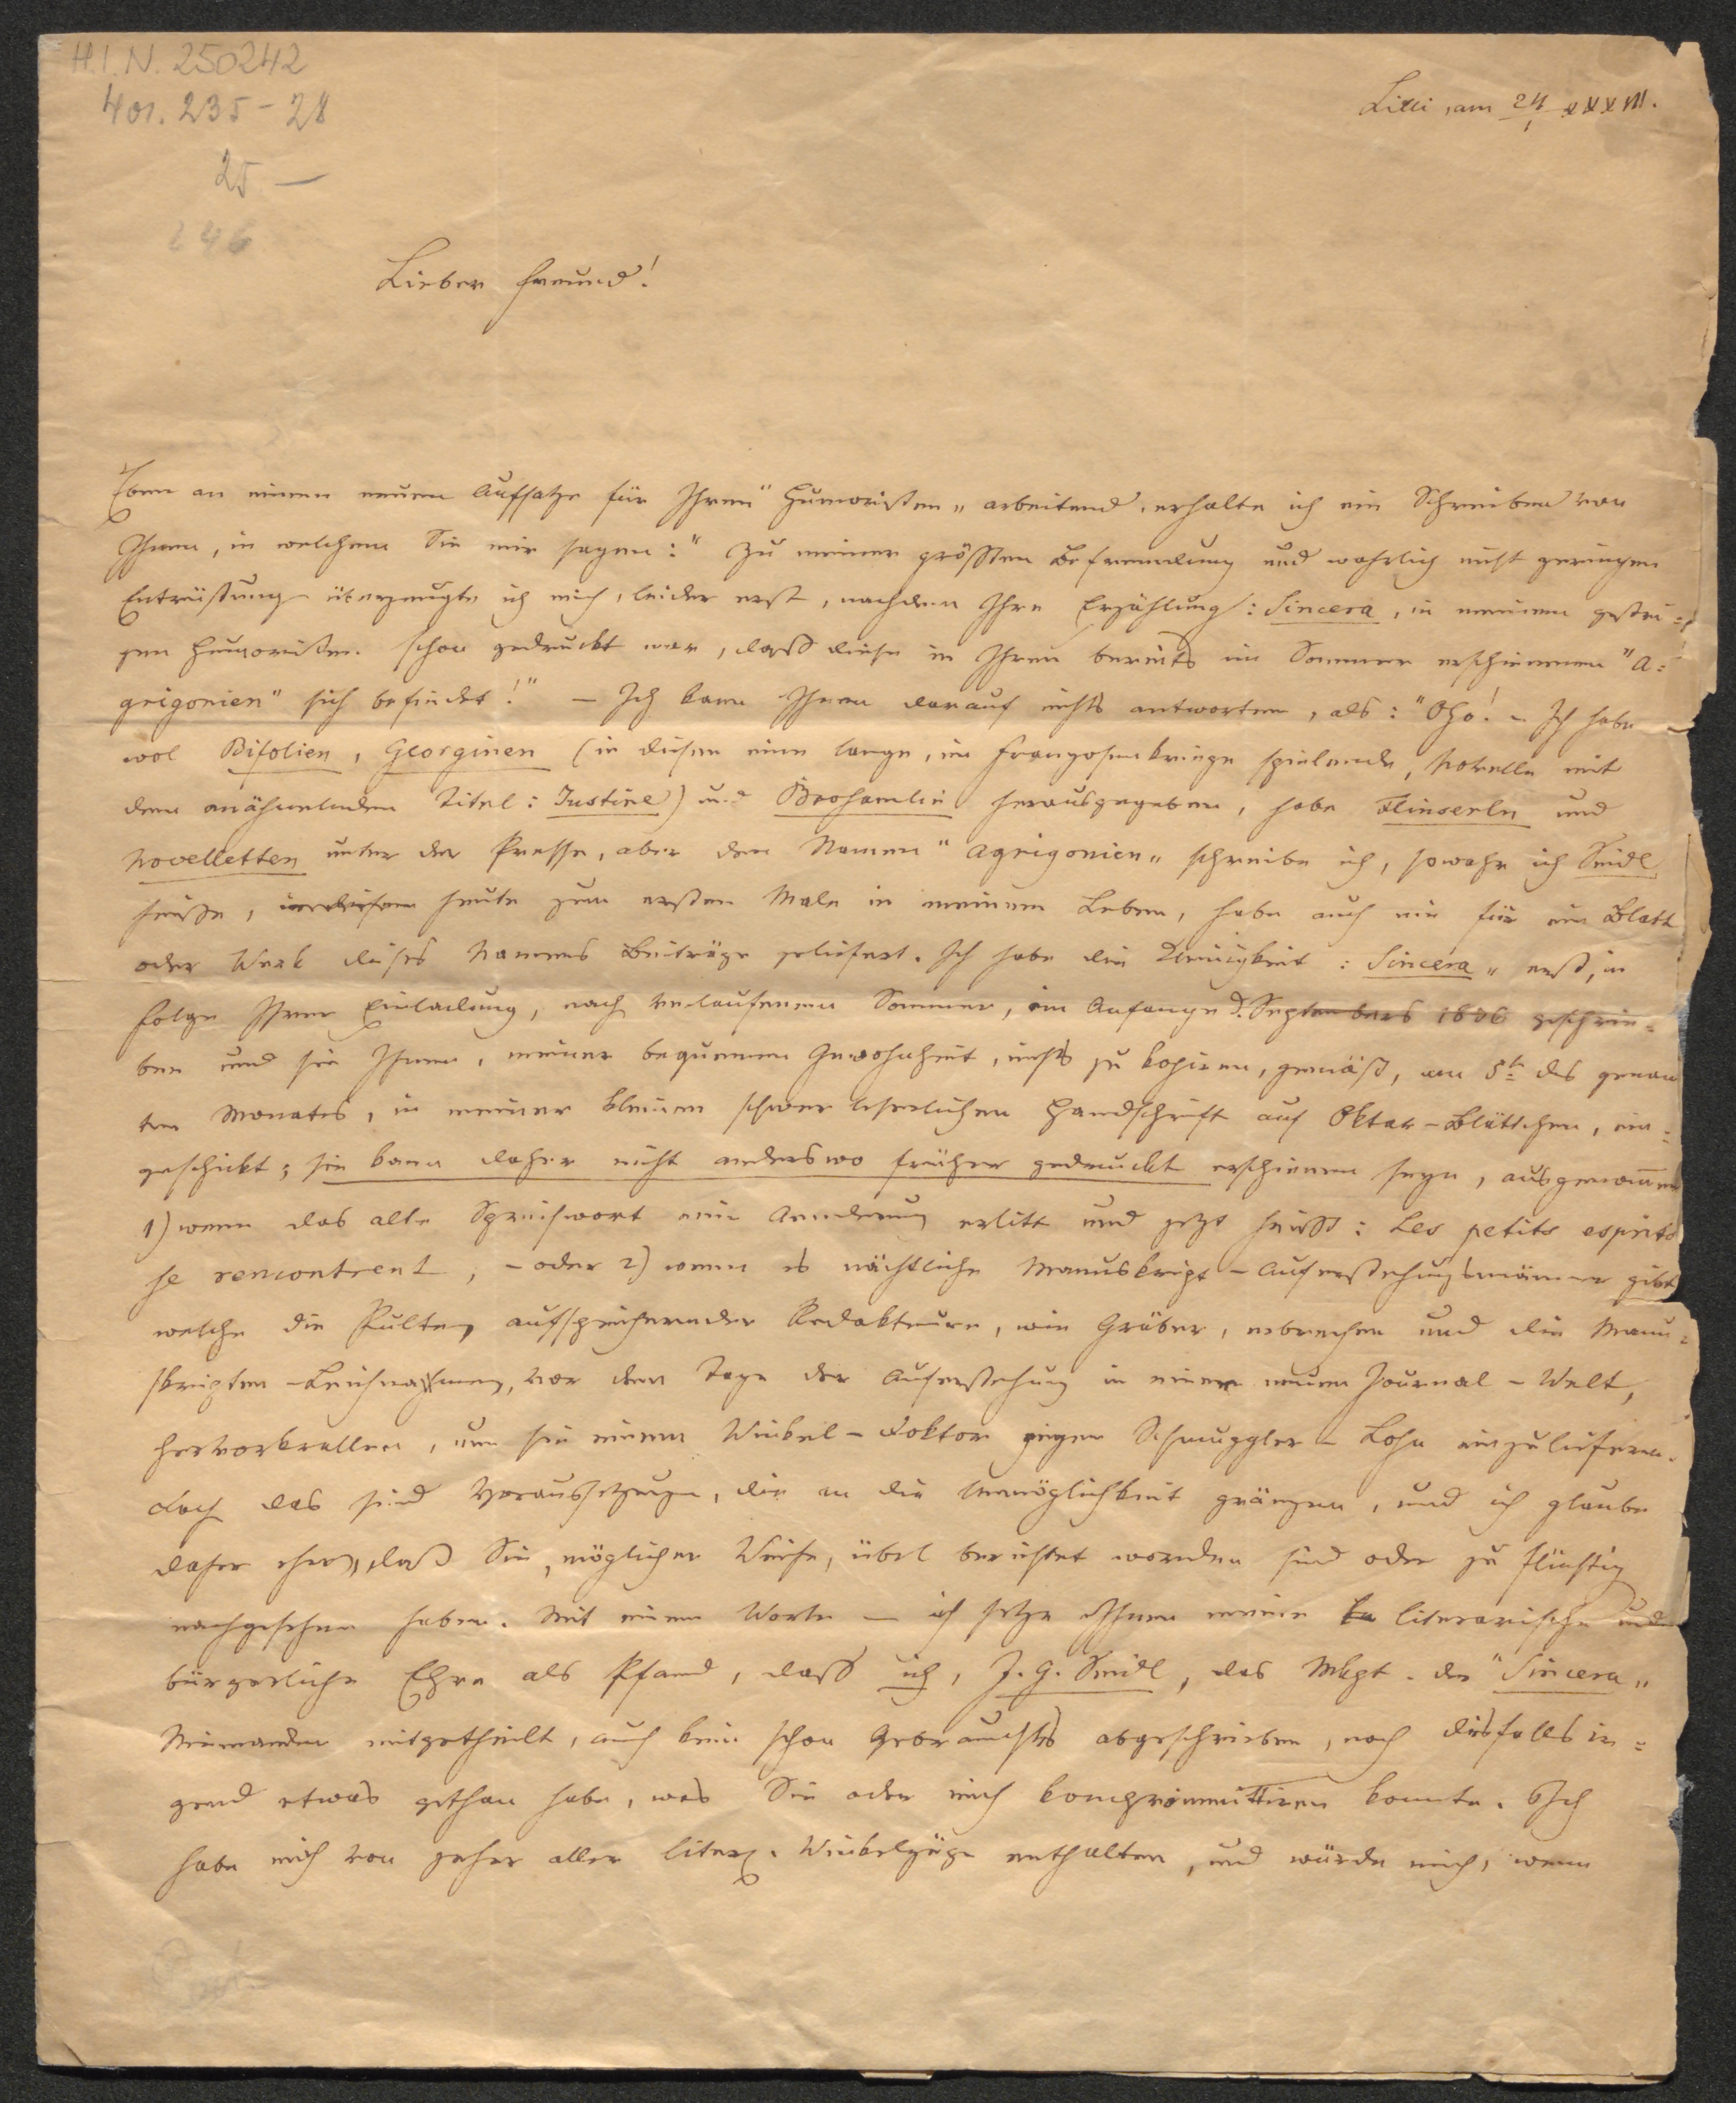 H.I.N. 250242
401. 235-28
25 —
246
Cilli, am 24/1 XXXVII.
Lieber Freund!
Eben an einem neuen Aufsatze für Ihren "Humoristen" arbeitend, erhalte ich ein Schreiben von
Ihnen, in welchem Sie mir sagen: "Zu meiner größten Befremdung und wahrlich nicht geringen
Entrüstung überzeugte ich mich, leider erst, nachdem Ihre Erzählung: Sincera, in meinem gestri=
gen Humoristen schon gedruckt war, daß diese in Ihren bereits im Sommer erschienenen "A=
grigonien" sich befindet!" – Ich kann Ihnen darauf nichts antworten, als: "Oho! – Ich habe
wol Bifolien, Georginen (in diesen eine lange, im Franzosenkriege spielende, Novelle mit
dem anähnelnden Titel: Justine) und Brosamlin herausgegeben, habe Flinserln und
Novelletten unter der Presse, aber den Namen "Agrigonien" schreibe ich, sowahr ich Seidl
heiße, heute zum ersten Male in meinem Leben, habe auch nie für ein Blatt
oder Werk dieses Namens Beiträge geliefert. Ich habe die Kleinigkeit: Sincera" erst, in
Folge Ihrer Einladung, nach verlaufenem Sommer, im Anfange d. Septembers 1836 geschrie=
ben und sie Ihnen, meiner bequemen Gewohnheit, nichts zu kopiren, gemäß, am 5t. des genan
ten Monates, in meiner kleinen schwer leserlichen Handschrift auf Oktav-Blättchen, ein=
geschickt; sie kann daher nicht anderswo früher gedruckt erschienen seyn, ausgenommen
1) wenn das alte Sprichwort eine Aenderung erlitt und jetzt heißt: Les petits esprits
se rencontrent, – oder 2) wenn es nächtliche Manuskript-Auferstehungsmänner gibt
welche die Pulte aufspeichernder Redakteure, wie Gräber, erbrechen und die Manu=
skripten-Leichname, vor dem Tage der Auferstehung in einer neuen Journal-Welt,
hervorkrallen, um sie einem Winkel-Doktor gegen Schmuggler-Lohn einzuliefern.
Doch das sind Voraussetzungen, die an die Unmöglichkeit gränzen, und ich glaube
daher eher, daß Sie, möglicher Weise, übel berichtet worden sind oder zu flüchtig
nachgesehen haben. Mit einem Worte – ich setze Ihnen meine literarische und
bürgerliche Ehre als Pfand, daß ich, J. G. Seidl, das Mkpt. der "Sincera"
Niemanden mitgetheilt, auch kein schon Gebrauchtes abgeschrieben, noch diesfalls ir=
gend etwas gethan habe, was Sie oder mich kompromittiren konnte. Ich
habe mich von jeher aller literar. Winkelzüge enthalten, und würde mich, wenn